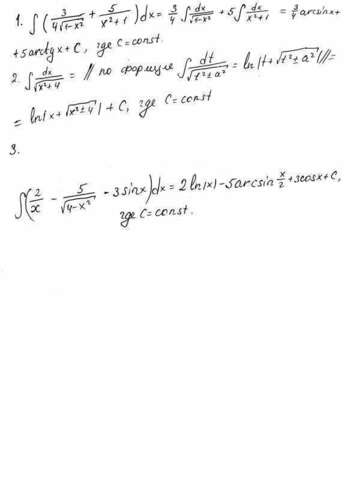 1. ∫(3/(4√(1-x²)) + 5/(x²+1))dx = 3/4 ∫dx/√(1-x²) + 5∫dx/(x²+1) = 3/4 arcsinx+
+5arctgx + C, где C=const.
2. ∫dx/√(x²+4) = // по формуле ∫dt/√(t²±a²) = ln|t+√(t²±a²)|// =
= ln|x+√(x²±4)| + C, где C=const
3.
∫(2/x - 5/√(4-x²) - 3sinx)dx = 2ln|x| - 5arcsin x/2 + 3cosx + C,
где C=const.